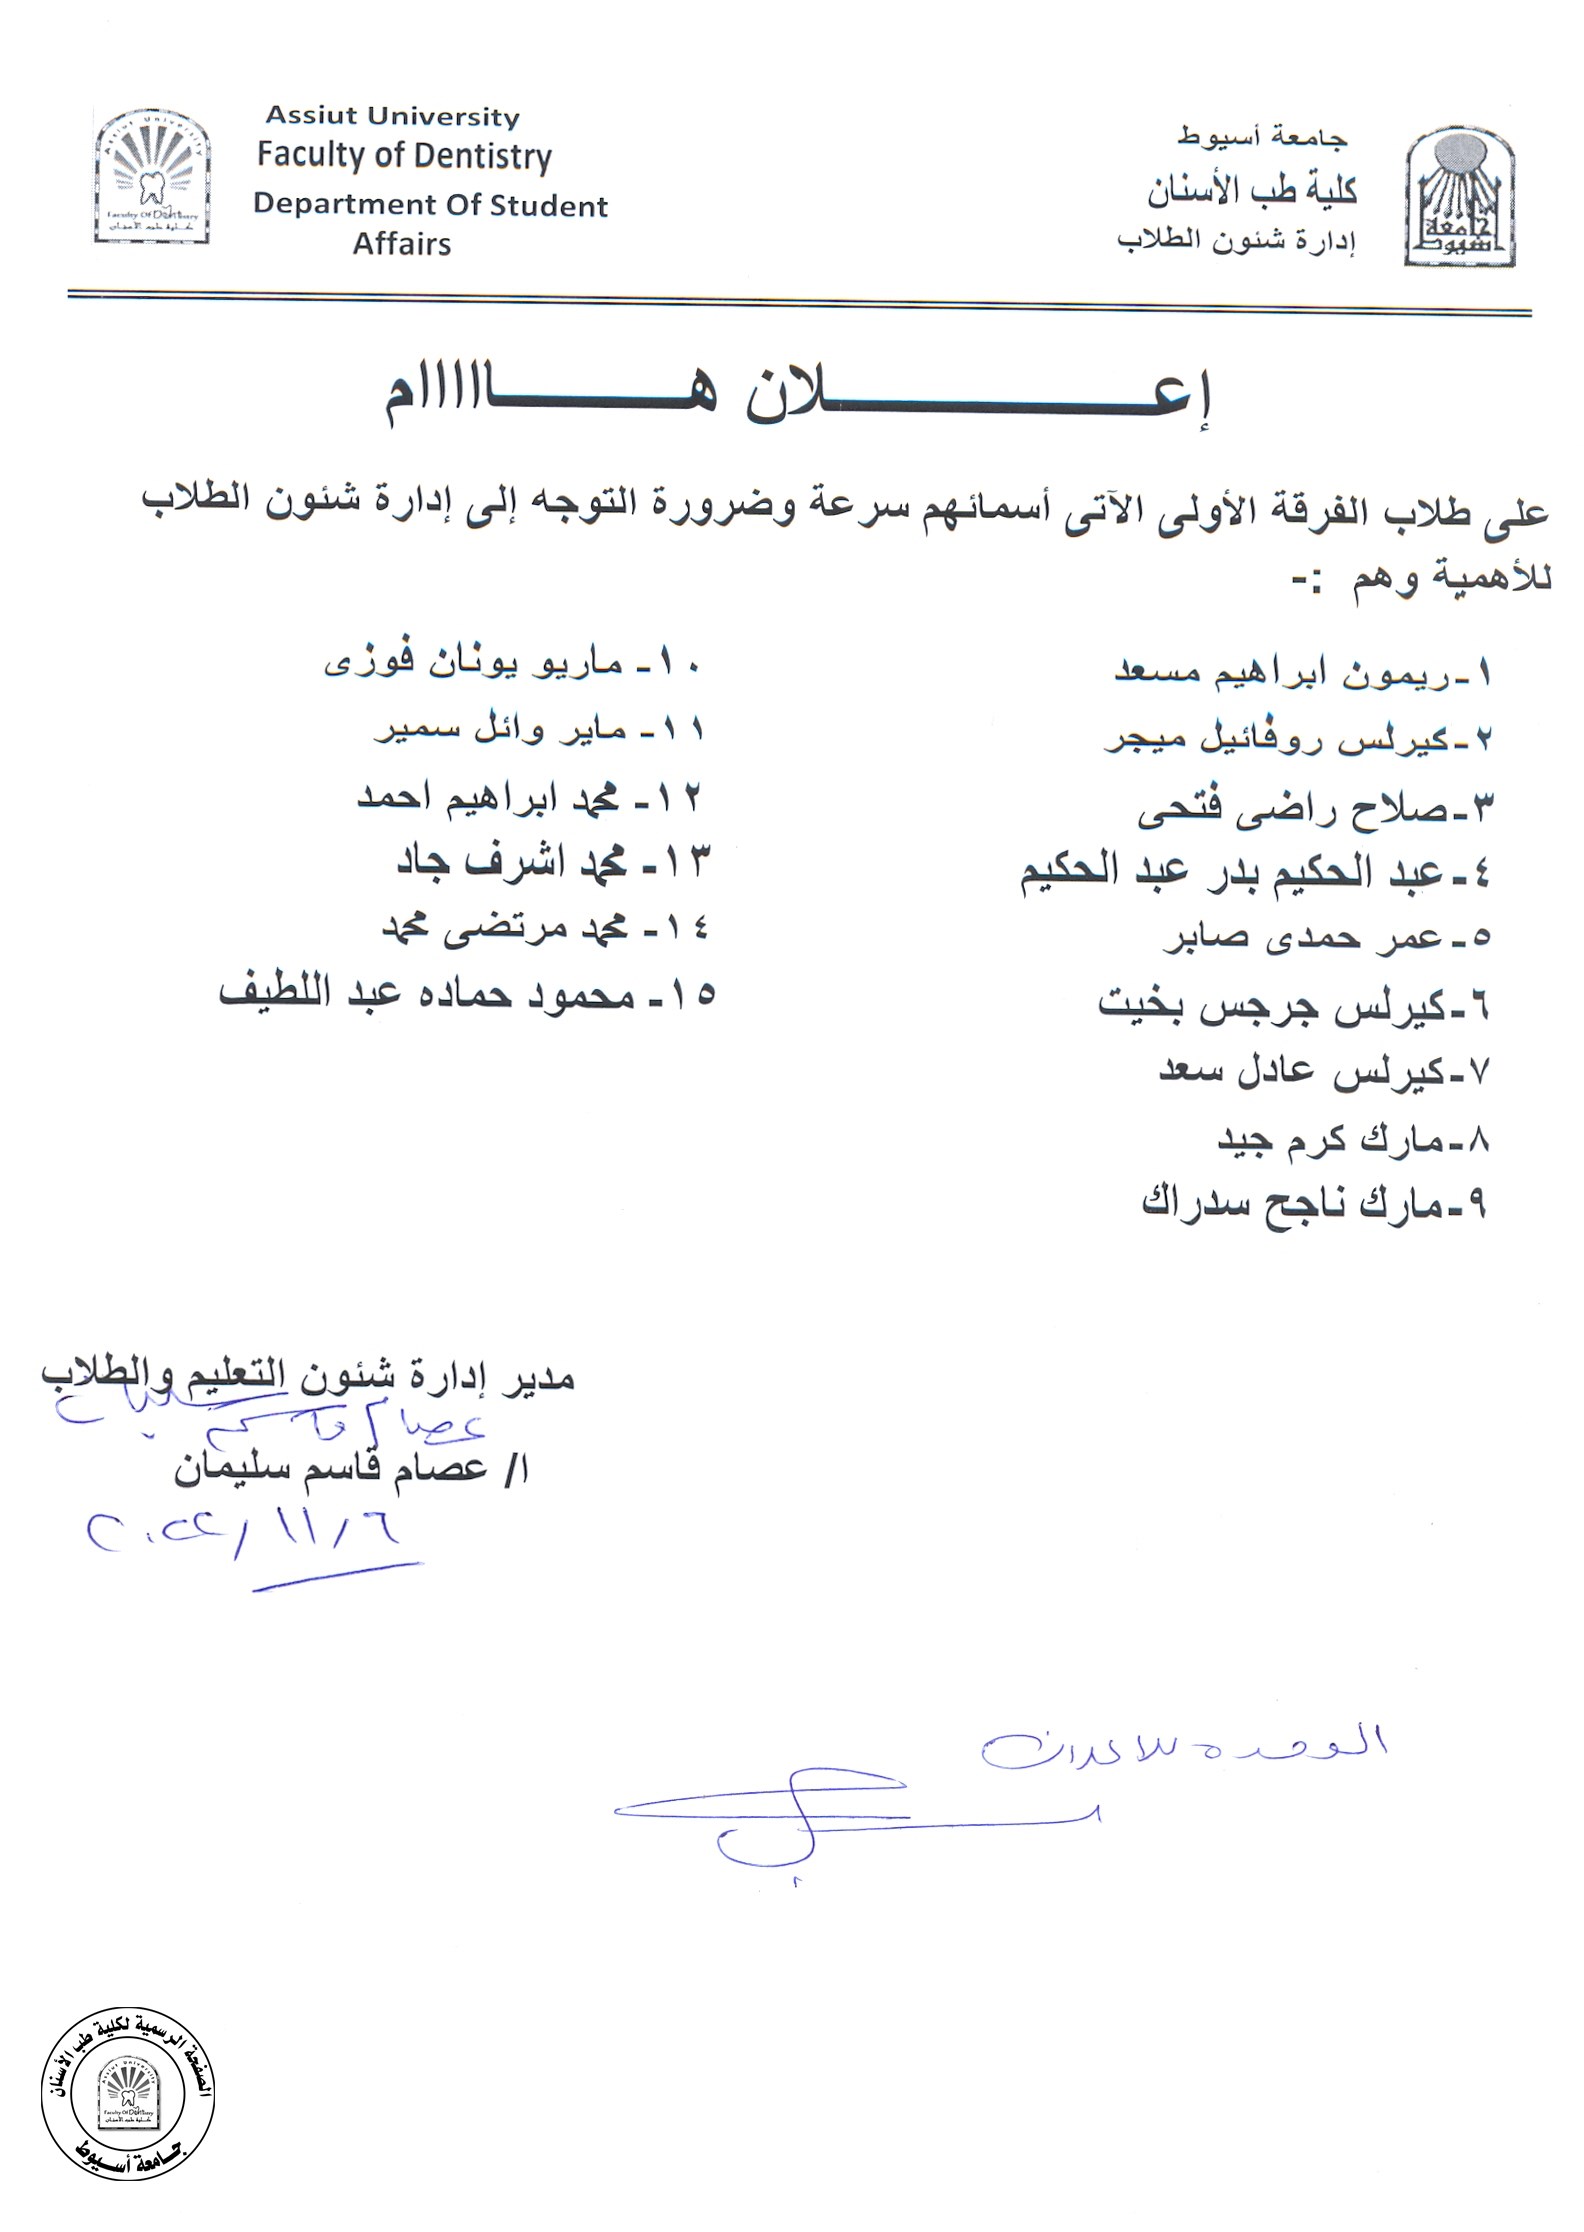 Assiut University
Faculty of Dentistry
Department Of Student
Affairs
جامعة أسيوط
كلية طب الأسنان
إدارة شئون الطلاب
إعـــــــــلان هـــــــــااااام
على طلاب الفرقة الأولى الآتى أسمائهم سرعة وضرورة التوجه إلى إدارة شئون الطلاب
للأهمية وهم :-
١-ريمون ابراهيم مسعد
٢-كيرلس روفائيل ميجر
٣-صلاح راضى فتحى
٤-عبد الحكيم بدر عبد الحكيم
٥-عمر حمدى صابر
٦-كيرلس جرجس بخيت
٧-كيرلس عادل سعد
٨-مارك كرم جيد
٩-مارك ناجح سدراك
١٠- ماريو يونان فوزى
١١- ماير وائل سمير
١٢- محمد ابراهيم احمد
١٣- محمد اشرف جاد
١٤- محمد مرتضى محمد
١٥- محمود حماده عبد اللطيف
مدير إدارة شئون التعليم والطلاب
عصام قاسم سليمان
ا/ عصام قاسم سليمان
٢٠٢٢/١١/٦
الصفحة الرسمية لكلية طب الأسنان
Assiut University
Faculty Of Dentistry
كلية طب الأسنان
جامعة أسيوط